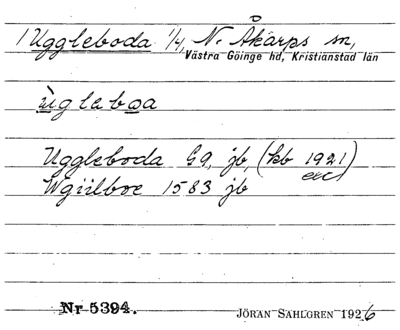 1 Uggleboda 1/4, N. Åkarps sn,
Västra Göinge hd, Kristianstad län
ùglebωa
Uggleboda G9, jb, (kb 1921)
Wgiilboe 1583 jb
Nr 5394.
JÖRAN SAHLGREN 1926